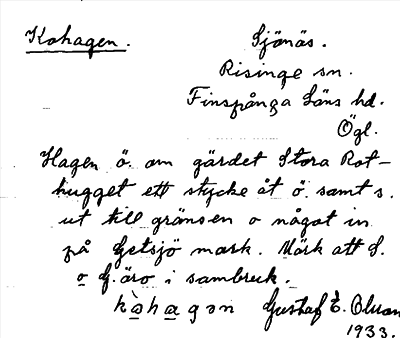 Kohagen. Sjönäs.
Risinge sn.
Finspånga läns hd.
Ögl.
Hagen ö. om gärdet Stora Rot-
hugget ett stycke åt ö. samt s.
ut till gränsen o något in
på Getsjö mark. Märk att S.
o G. äro i sambruk.
kòhagən Gustaf E. Olsson
1933.